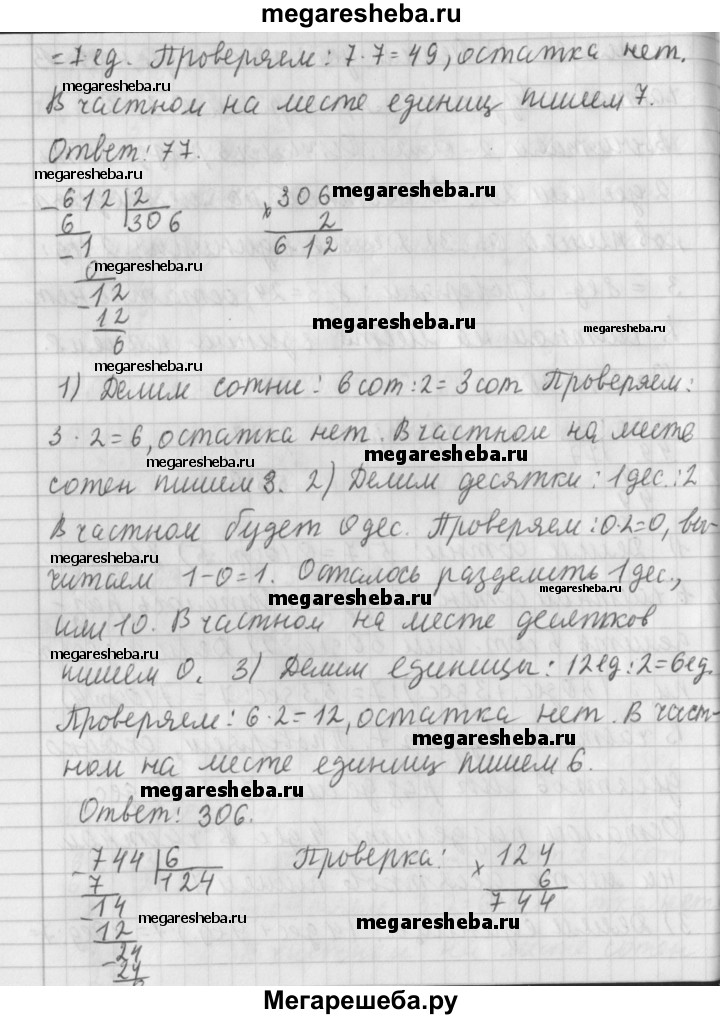 megaresheba.ru
= 7 ед. Проверяем: 7·7=49, остатка нет.
megaresheba.ru
megaresheba.ru
В частном на месте единиц пишем 7.
Ответ: 77.
megaresheba.ru
megaresheba.ru
612 | 2
6 306
-1
0
-12
12
6
× 306
2
612
megaresheba.ru
megaresheba.ru
megaresheba.ru
1) Делим сотни: 6 сот:2=3 сот Проверяем:
3·2=6, остатка нет. В частном на месте
megaresheba.ru
megaresheba.ru
сотен пишем 3. 2) Делим десятки: 1 дес.:2
В частном будет 0 дес. Проверяем: 0·2=0, вы-
megaresheba.ru
читаем 1-0=1. Осталось разделить 1 дес.,
megaresheba.ru
megaresheba.ru
или 10. В частном на месте десятков
пишем 0. 3) Делим единицы: 12ед:2=6ед.
Проверяем: 6·2=12, остатка нет. В част-
megaresheba.ru
ном на месте единиц пишем 6.
megaresheba.ru
Ответ: 306.
-744 | 6
7 124
-14
12
-24
24
Проверка:
× 124
6
744
megaresheba.ru
megaresheba.ru
Мегарешеба.ру